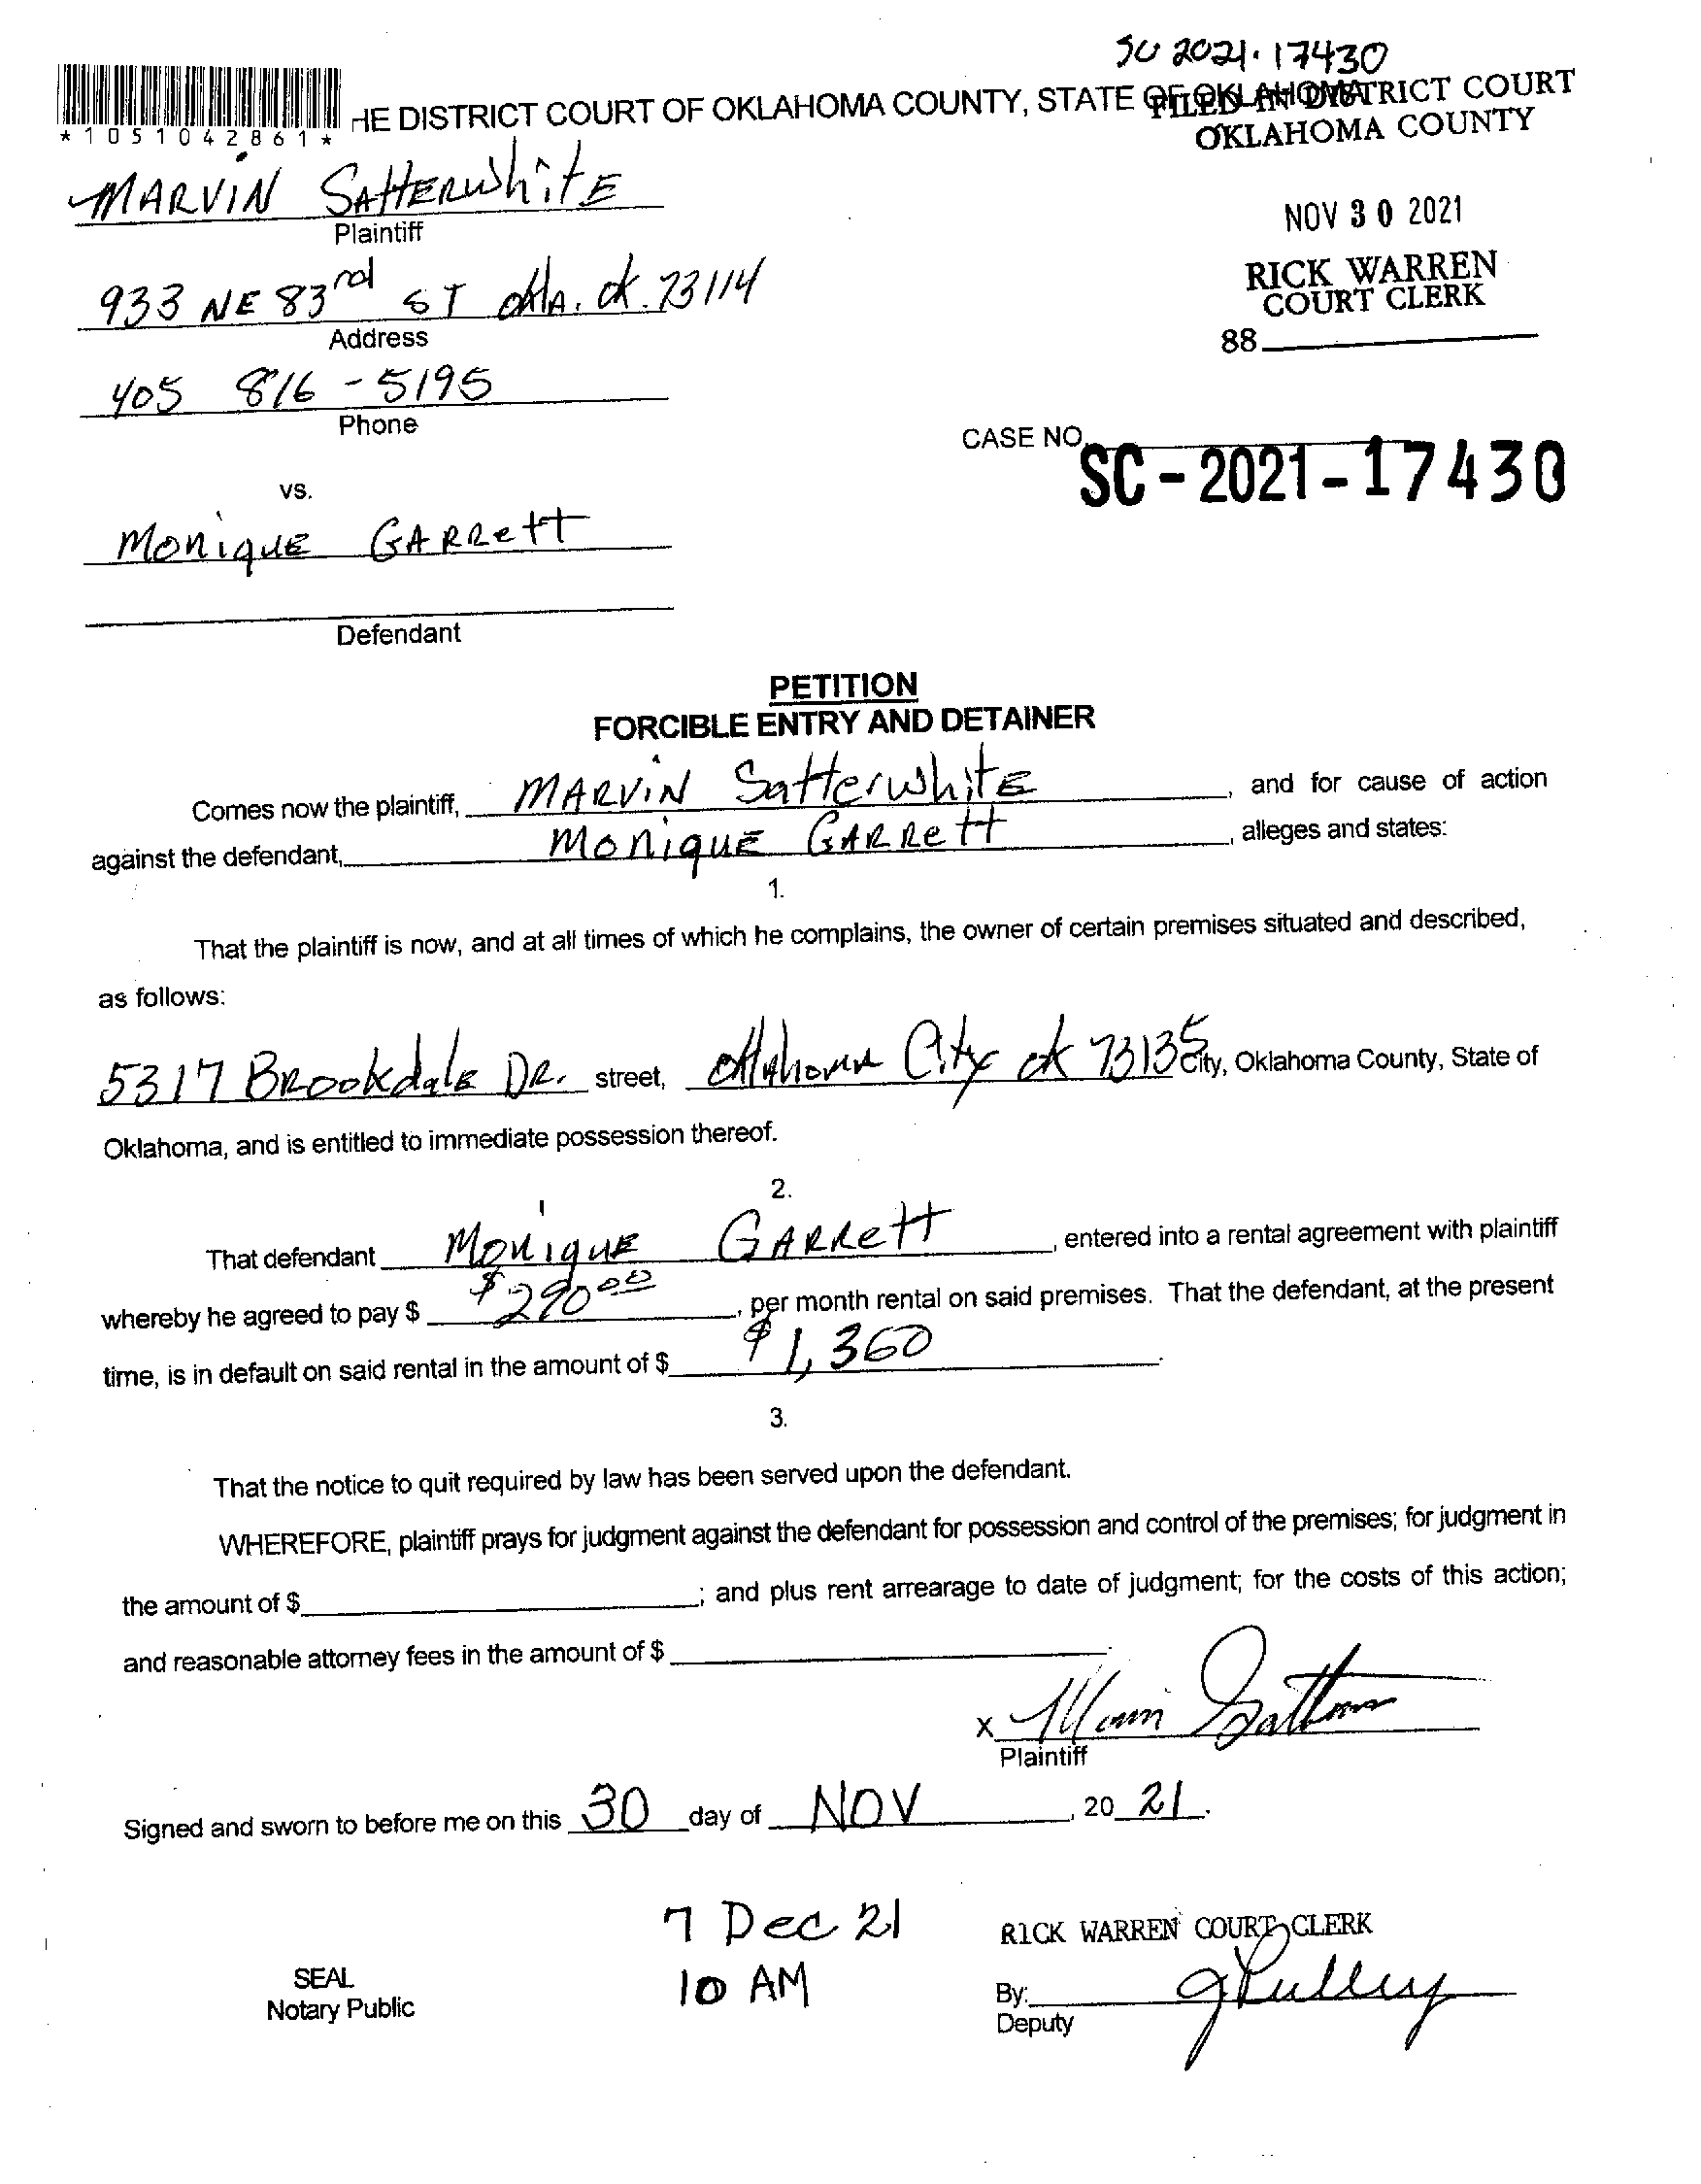 SC 2021-17430
*1051042861*
HE DISTRICT COURT OF OKLAHOMA COUNTY, STATE OF OKLAHOMA
FILED IN DISTRICT COURT
OKLAHOMA COUNTY
MARVIN SATTERWhiTE
Plaintiff
NOV 30 2021
RICK WARREN
COURT CLERK
88
933 NE 83rd ST OklA. Ok. 73114
Address
405 816-5195
Phone
CASE NO. SC-2021-17430
vs.
MoniquE GARRett
Defendant
PETITION
FORCIBLE ENTRY AND DETAINER
Comes now the plaintiff, MARViN SatterwhitE, and for cause of action
against the defendant, MoniquE GARRett, alleges and states:
1.
That the plaintiff is now, and at all times of which he complains, the owner of certain premises situated and described,
as follows:
5317 BRookdalE DR. street, Oklahoma City ok 73135 City, Oklahoma County, State of
Oklahoma, and is entitled to immediate possession thereof.
2.
That defendant MoniquE GARRett, entered into a rental agreement with plaintiff
whereby he agreed to pay $ $ 290.00, per month rental on said premises. That the defendant, at the present
time, is in default on said rental in the amount of $ $ 1,360.
3.
That the notice to quit required by law has been served upon the defendant.
WHEREFORE, plaintiff prays for judgment against the defendant for possession and control of the premises; for judgment in
the amount of $ ; and plus rent arrearage to date of judgment; for the costs of this action;
and reasonable attorney fees in the amount of $ .
X
Plaintiff
Signed and sworn to before me on this 30 day of NOV, 20 21.
7 Dec 21
10 AM
RICK WARREN COURT CLERK
SEAL
Notary Public
By: 
Deputy